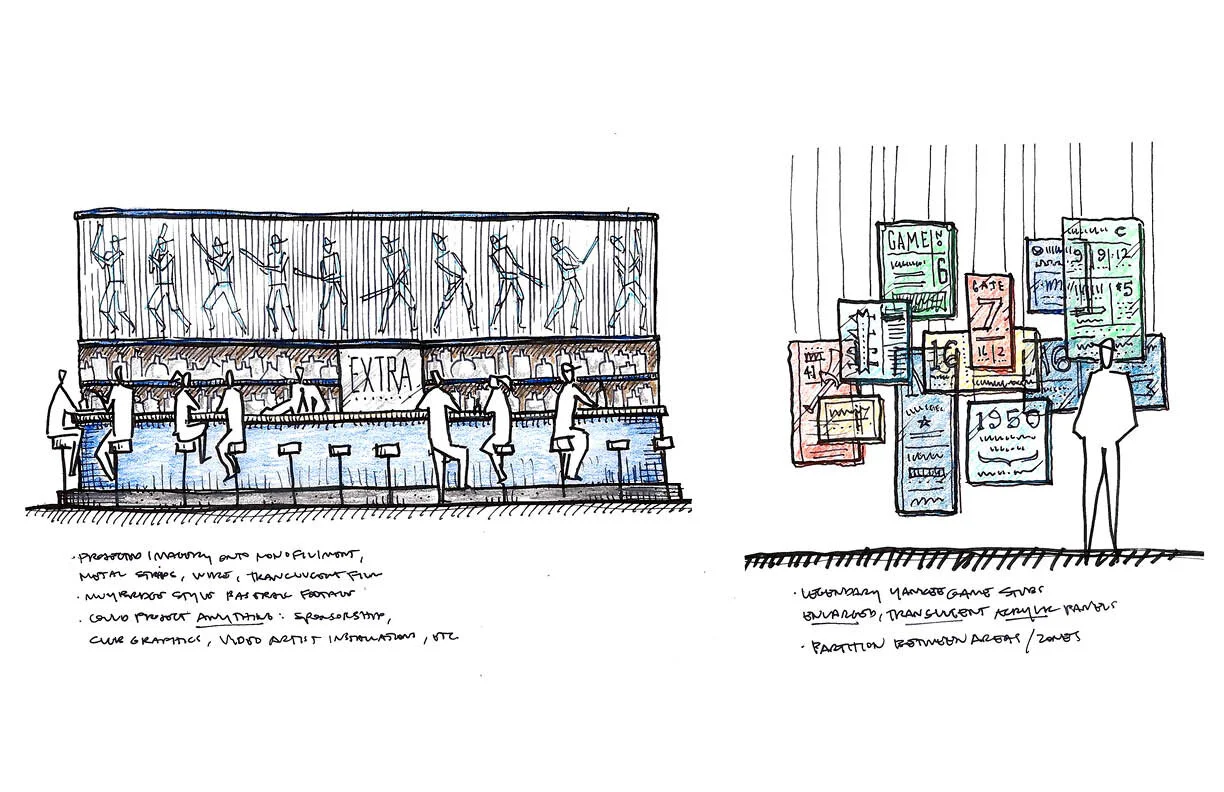 EXTRA
· PROJECTED IMAGERY ONTO MONOFILIMENT,
METAL STRIPS, WIRE, TRANSLUCENT FILM
· MUYBRIDGE STYLE BASEBALL FOOTAGE
· COULD PROJECT ANYTHING: SPONSORSHIP,
CLUB GRAPHICS, VIDEO ARTIST INSTALLATIONS, ETC
GAME NO
6
C
9 9|·12
$5
GATE
7
16|2
16
16
1950
· LEGENDARY YANKEE GAME STUBS
ENLARGED, TRANSLUCENT ACRYLIC PANELS
· PARTITION BETWEEN AREAS / ZONES